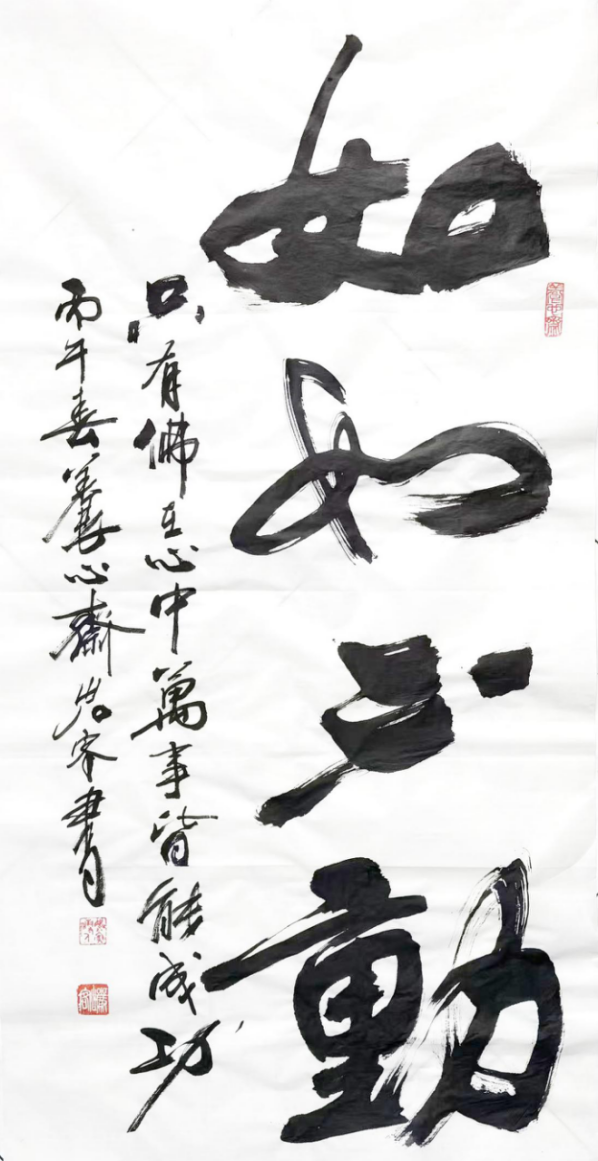 如如不動
只有佛在心中萬事皆能成功
丙午春善心齋岩客書